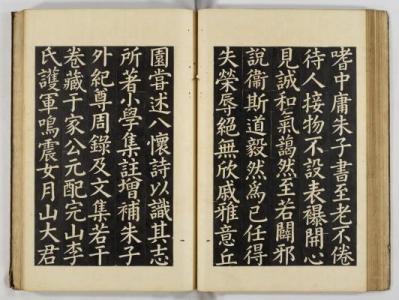 嗜中庸朱子書至老不倦
待人接物不設表襮開心
見誠和氣藹然至若闢邪
說衞斯道毅然爲已任得
失榮辱絕無欣戚雅意丘
園嘗述八懷詩以識其志
所著小學集註增補朱子
外紀尊周錄及文集若干
卷藏于家公元配完山李
氏護軍鳴震女月山大君